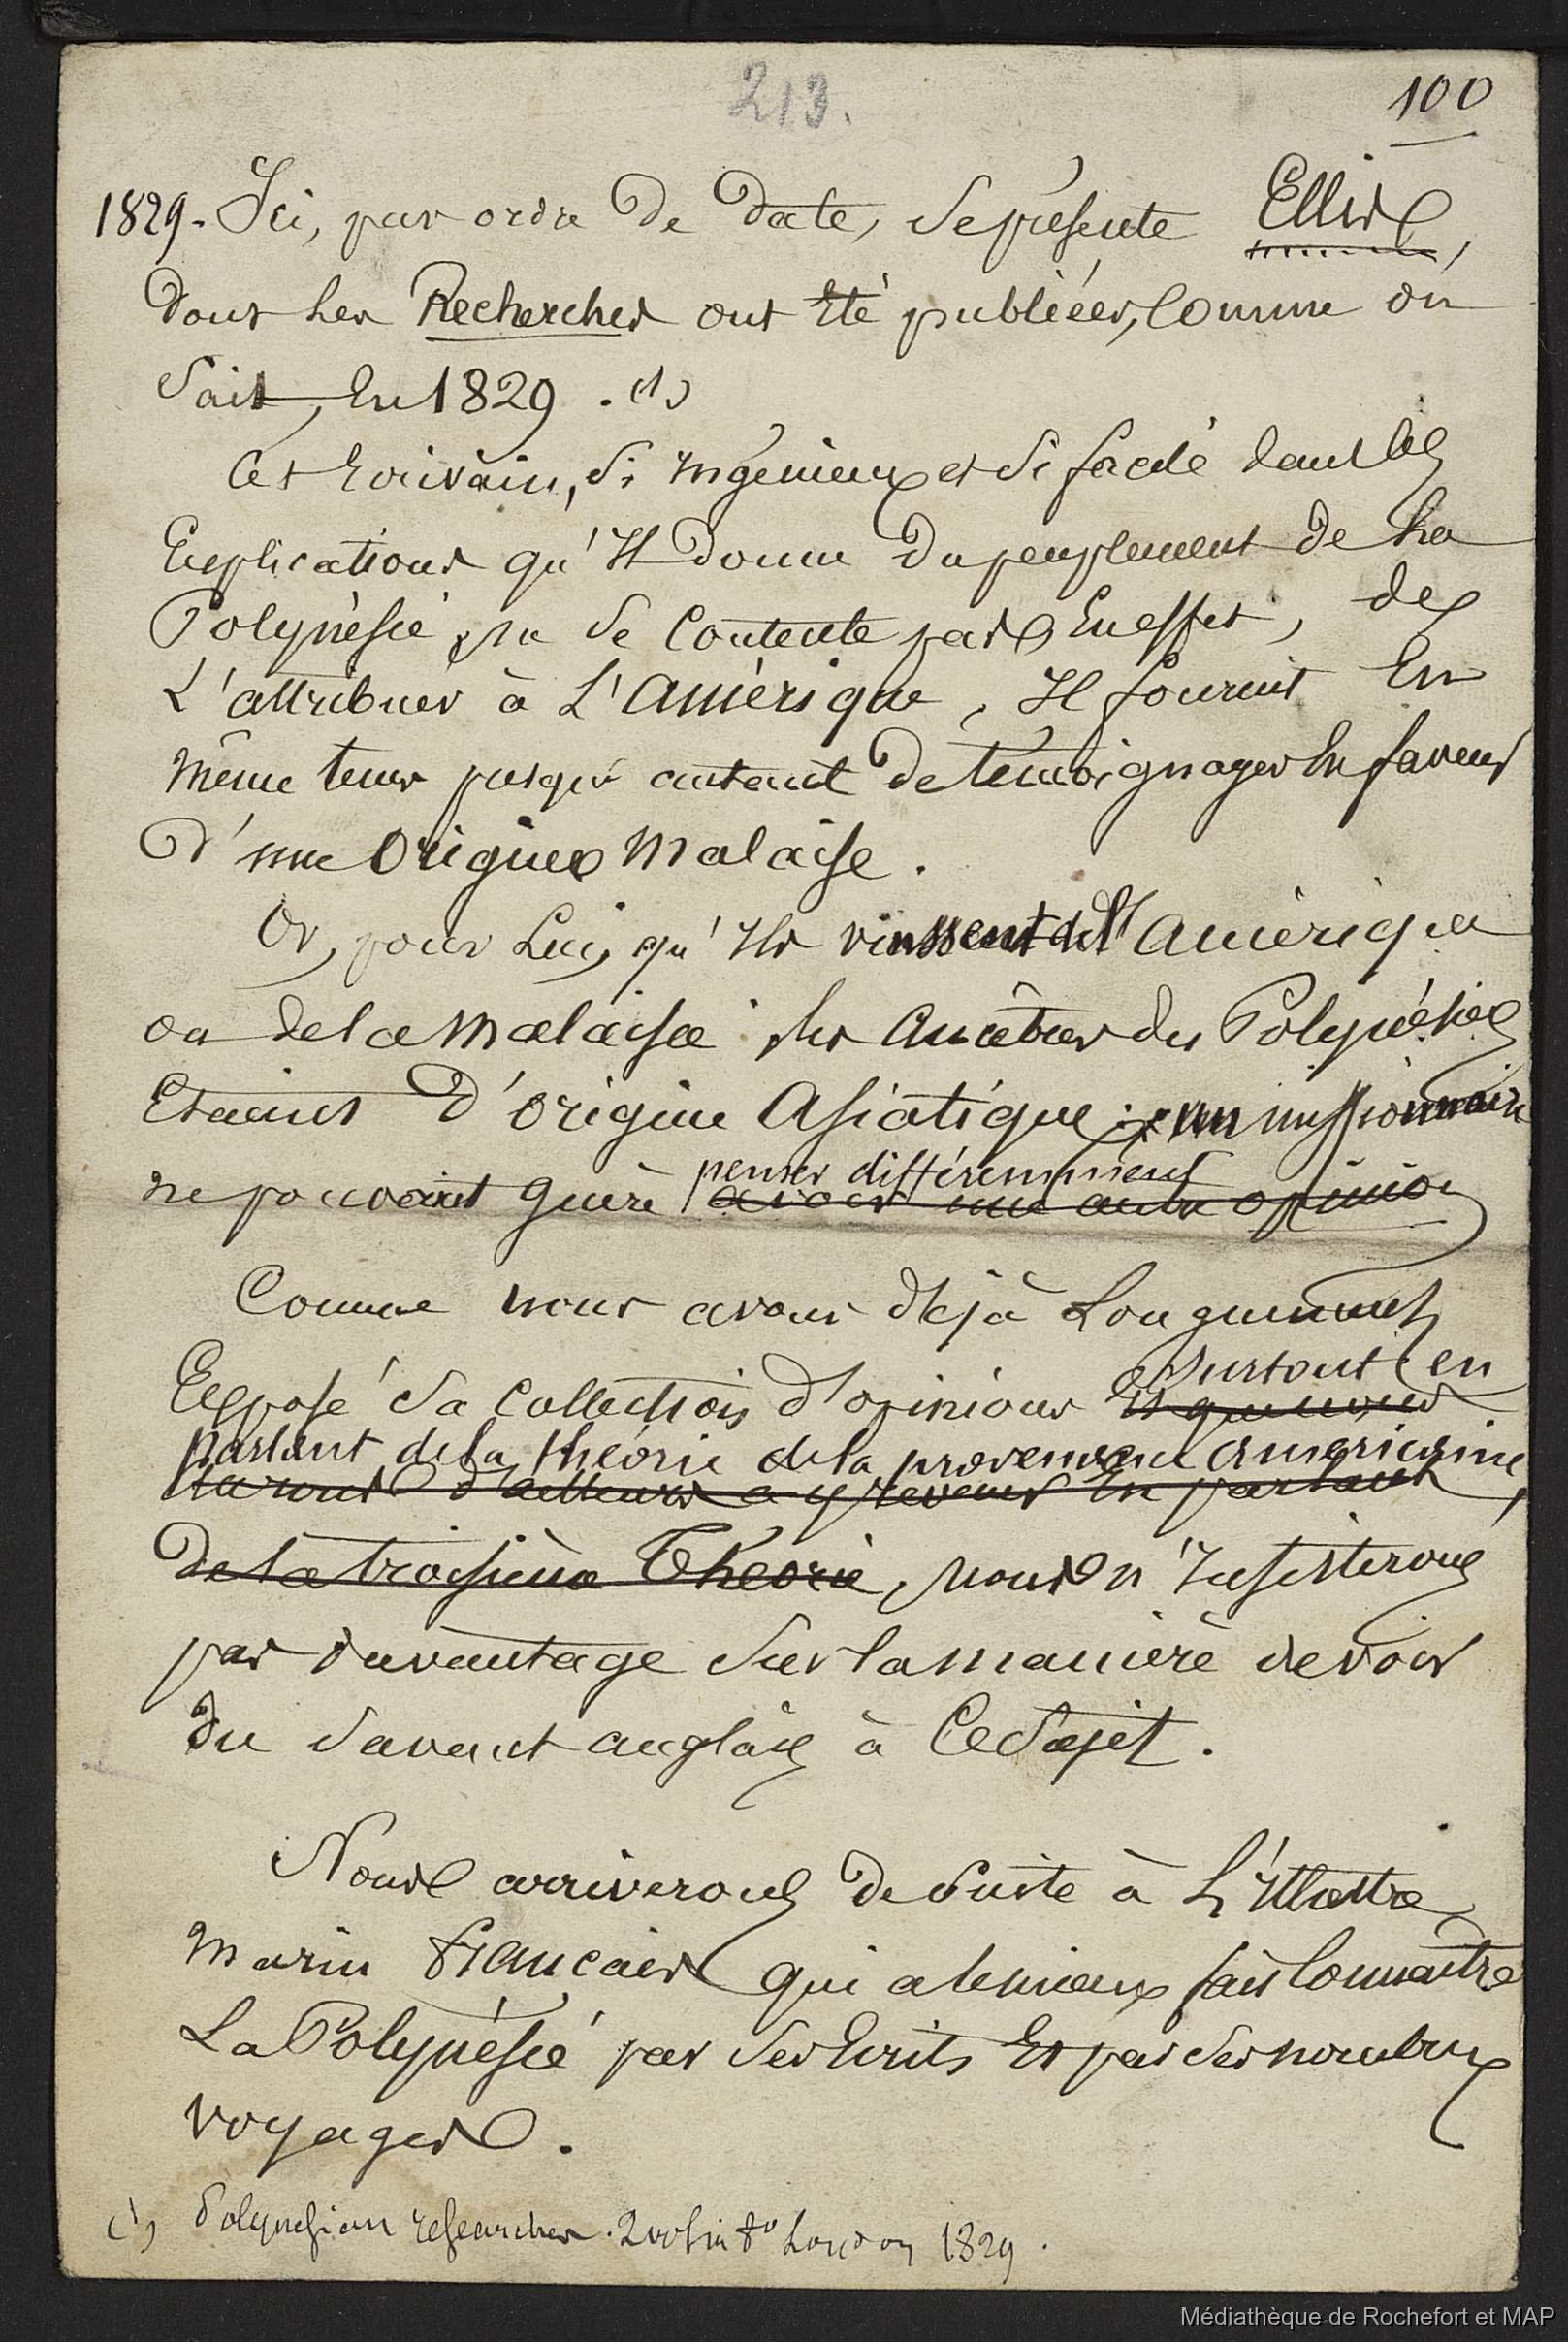 213.
100
1829. Ici, par ordre de date, se présente Ellis,
dont les Recherches ont été publiées, comme on
sait, en 1829. (1)
Cet écrivain, si ingénieux et si facile dans les
explications qu'il donne du peuplement de la
Polynésie, ne se contente pas, en effet, de
l'attribuer à l'Amérique, il fournit en
même tems presque autant de témoignages en faveur
d'une origine malaise.
Or, pour lui, qu'ils vinssent de l'Amérique
ou de la Malaisie, les ancêtres des Polynésiens
étaient d'origine asiatique; un missionnaire
penser différemment
ne pouvait guère avoir une autre opinion
Comme nous avons déjà longuement
surtout en
exposé sa collection d'opinions et que nous
parlant de la théorie de la provenance américaine,
aurons d'ailleurs à y revenir en parlant
de la troisième théorie, nous n'insisterons
pas davantage sur la manière de voir
du savant anglais à ce sujet.
Nous arriverons de suite à l'illustre
marin français qui a le mieux fait connaître
la Polynésie par ses écrits et par ses nombreux
voyages.
(1) Polynesian researches. 2 vol in 8º London 1829.
Médiathèque de Rochefort et MAP